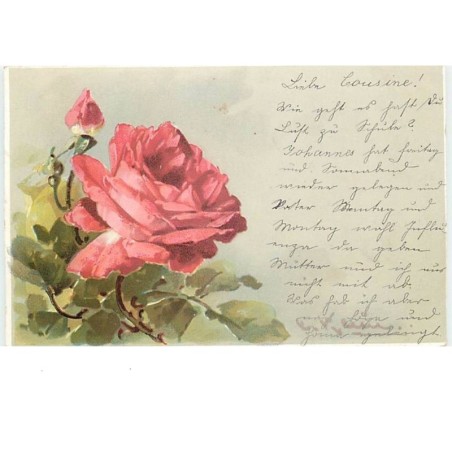 Liebe Cousine!
Wie geht es hast Du
Lust zu Schule?
Johannes hat Freitag
und Sonnabend
wieder gelegen und
Vater Sonntag und
Montag wohl
da geben
Mutter und ich uns
nicht mit ab.
Was hab ich aber
und